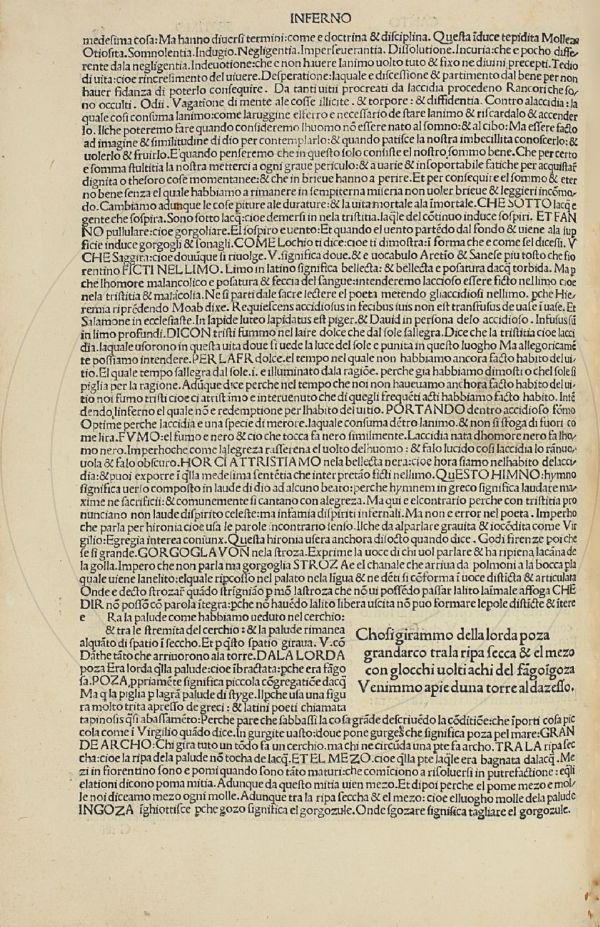 INFERNO
medesima cosa: Ma hanno diuersi termini: come e doctrina & disciplina. Questa iduce tepidita Molleza
Otiosita. Somnolentia. Indugio. Negligentia. Imperseuerantia. Dissolutione. Incuria: che e pocho diffe-
rente dala negligentia. Indeuotione: che e non hauere lanimo uolto tuto & fixo ne diuini precepti. Tedio
di uita: cioe rincrescimento del uiuere. Desperatione: laquale e discessione & partimento dal bene per non
hauer fidanza di poterlo consequire. Da tanti uitii procreati da laccidia procedeno Rancori che so-
no occulti. Odii. Vagatione di mente ale cosse illicite. & torpore: & diffidentia. Contro alaccidia: la
quale cosi consuma lanimo: come laruggine elferro e necessario de stare lanimo & riscardalo & accender
lo. Ilche poteremo fare quando consideremo lhuomo nō essere nato al somno: & al cibo: Ma essere facto
ad imagine & similitudine di dio per contemplarlo: & quando patisce la nostra imbecillita conoscerlo: &
uolerlo & fruirlo. E quando penseremo che in questo solo consiste el nostro sommo bene. Che per certo
e somma stultitia la nostra metterci a ogni graue periculo: & a uarie & insoportabile fatiche per acquistar
dignita o thesoro cose momentanee: & che in brieue hanno a perire. Et per consequire el sommo & eter
no bene senza el quale habbiamo a rimanere in sempiterna miseria non uoler brieue & leggieri incōmo-
do. Cambiamo adunque le cose piture ale durature: & la uita mortale ala īmortale. CHE SOTTO lacq̄ e
gente che sospira. Sono sotto lacq̄: cioe demersi in nela tristitia. laq̄le del cōtinuo induce sospiri. ET FAN
NO pullulare: cioe gorgoliare. El sospiro e uento: Et quando el uento partēdo dal fondo & uiene ala sup
ficie induce gorgogli & sonagli. COME Lochio ti dice: cioe ti dimostra: ī forma che e come sel dicessi. V
CHE Saggira: cioe douūque si riuolge. V. significa doue. & e uocabulo Aretīo & Sanese piu tosto che fio
rentino FICTI NEL LIMO. Limo in latino significa bellecta: & bellecta e posatura dacq̄ torbida. Ma p
che lhomore malancolico e posatura & feccia del sangue: intenderemo laccioso essere ficto nel limo cioe
nela tristitia & malicolia. Ne si parti dale sacre lectere el poeta metendo gliaccidiosi nellimo. pche Hie-
remia riprēdendo Moab dixe. Requiescens accidiosus in fecibus suis non est transfusus de uase ī uase. Et
Salamone in ecclesiaste. In lapide luteo lapidatus est piger. & Dauid in persona delo accidioso. Infixus sū
in limo profundi. DICON tristi fummo nel laire dolce che dal sole sallegra. Dice che la tristitia cioe lacci
dia. laquale usorono in questa uita doue si uede la luce del sole e punita in questo luogho Ma allegoricamē
te possiamo intendere. PER LAER dolce. el tempo nel quale non habbiamo ancora facto habito del ui-
tio. El quale tempo sallegra dal sole. i. e illuminato dala ragiōe. perche gia habbiamo dimostro chel sole si
piglia per la ragione. Adūque dice perche nel tempo che noi non haueuamo anchora facto habito del ui-
tio noi fumo tristi cioe accidiosi e interuenuto che di quegli frequēti acti habbiamo facto habito. Intē
dendo līnferno el quale nō e redemptione per lhabito del uitio. PORTANDO dentro accidioso fūmo
Optime perche laccidia e una specie di merore. laquale consuma dētro lanimo. & non si sfoga di fuori co
me lira. FVMO: el fumo e nero & cio che tocca fa nero similmente. Laccidia nata dhomore nero fa lho-
mo nero. Imperhoche come lalegreza rasserena el uolto del huomo: & falo lucido cosi laccidia lo rānuo-
uola & falo obscuro. HOR CI ATTRISTIAMO nela bellecta nera: cioe hora siamo nelhabito delacci-
dia: & puoi exporre ī q̄lla medesima sentētia che interpretāo ficti nellimo. QVESTO HIMNO: hymno
significa uerso composto in laude di dio ad alcuno beato: perche hymnein in greco significa laudare ma-
xime ne sacrificii: & comunemente si cantano con alegreza. Ma qui e elcontrario perche con tristitia pro
nunciano non laude dispirito celeste: ma infamia dispiriti infernali. Ma non e error nel poeta. Imperho
che parla per hironia cioe usa le parole incontrario senso. Ilche da alparlare grauita & iocōdita come Vir
gilio: Egregia interea coniunx. Questa hironia usera anchora disocto quando dice. Godi firenze poi che
se si grande. GORGOGLAVON nela stroza. Exprime la uoce di chi uol parlare & ha ripiena lacāna de
la golla. Impero che non parla ma gorgoglia STROZA e el chanale che arriua da polmoni a la bocca pla
quale uiene lanelito: elquale ripcosso nel palato nela līgua & ne dēti si cōforma ī uoce disticta & articulata
Onde e decto stroza: quādo strīgniāo p mō lastroza che nō ui possēdo passar lalito laīmale affoga CHE
DIR nō possō cō parola ītegra: pche nō hauēdo lalito libera uscita nō puo formare lepole disticte & itere
e Ra la palude come habbiamo ueduto nel cerchio:
& tra le stremita del cerchio: & la palude rimanea
alquāto di spatio ī seccho. Et p q̄sto spatio giraua. V. cō
Dāthe tāto che arriuorono ala torre. DALA LORDA
poza Era lorda q̄lla palude: cioe ībractata: pche era fāgo
sa. POZA, ppriamēte significa piccola cōgregatiōe dacq̄
Ma q̄ la piglia p lagrā palude di styge. Ilpche usa una figu
ra molto trita apresso de greci: & latini poeti chiamata
tapinosis q̄si abassamēto: Perche pare che sabbassi la cosa grāde descriuēdo la cōditiōe: che iporti cosa pic
cola come ī Virgilio quādo dice. In gurgite uasto: doue pone gurges che significa poza pel mare: GRAN
DE ARCHO: Chi gira tuto un tōdo fa un cerchio. ma chi ne circūda una pte fa archo. TRA LA ripa sec-
cha: cioe la ripa dela palude nō tocha de lacq̄. ET EL MEZO. cioe q̄lla pte laq̄le era bagnata dalacq̄. Me
zi in fiorentino sono e pomi quando sono tāto maturi: che comīciono a risoluersi in putrefactione: eq̄li
elationi dicono poma mitia. Adunque da questo mitia uien mezo. Et dipoi perche el pome mezo e mol
le noi diceamo mezo ogni molle. Adunque tra la ripa seccha & el mezo: cioe elluogho molle dela palude
INGOZA īghiottisce pche gozo significa el gorgozule. Onde sgozare significa tagliare el gorgozule.
Chosi giramo della lorda poza
grandarco tra la ripa secca & el mezo
con glocchi uolti achi del fāgo īgoza
Venimmo apie duna torre al dazesso.